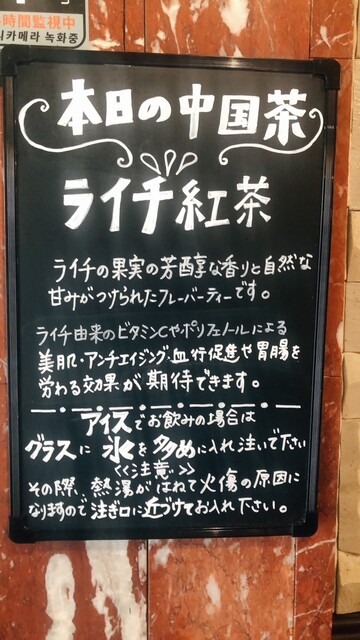 時間監視中
카메라 녹화중
本日の中国茶
ライチ紅茶
ライチの果実の芳醇な香りと自然な
甘みがつけられたフレーバーティーです。
ライチ由来のビタミンCやポリフェノールによる
美肌・アンチエイジング、血行促進や胃腸を
労わる効果が期待できます。
アイスでお飲みの場合は
グラスに氷を多めに入れ注いで下さい
<<注意>>
その際、熱湯がはねて火傷の原因に
なりますので、注ぎ口に近づけてお入れ下さい。